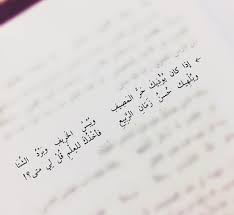 ← إِذَا كَانَ يُؤْذِيكَ حَرُّ المَصِيفِ وَيُبْسُ الخَرِيفِ وَبَرْدُ الشِّتَا
وَيُلْهِيكَ حُسْنُ زَمَانِ الرَّبِيعِ فَأَخْذُكَ لِلعِلْمِ قُلْ لِي مَتَى؟!